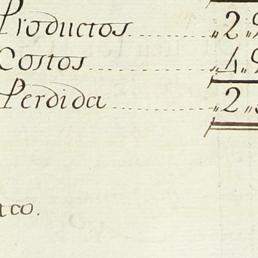 Productos ......... „2„9
Costos ............ „4„9
Perdida ........... „2„
aco.